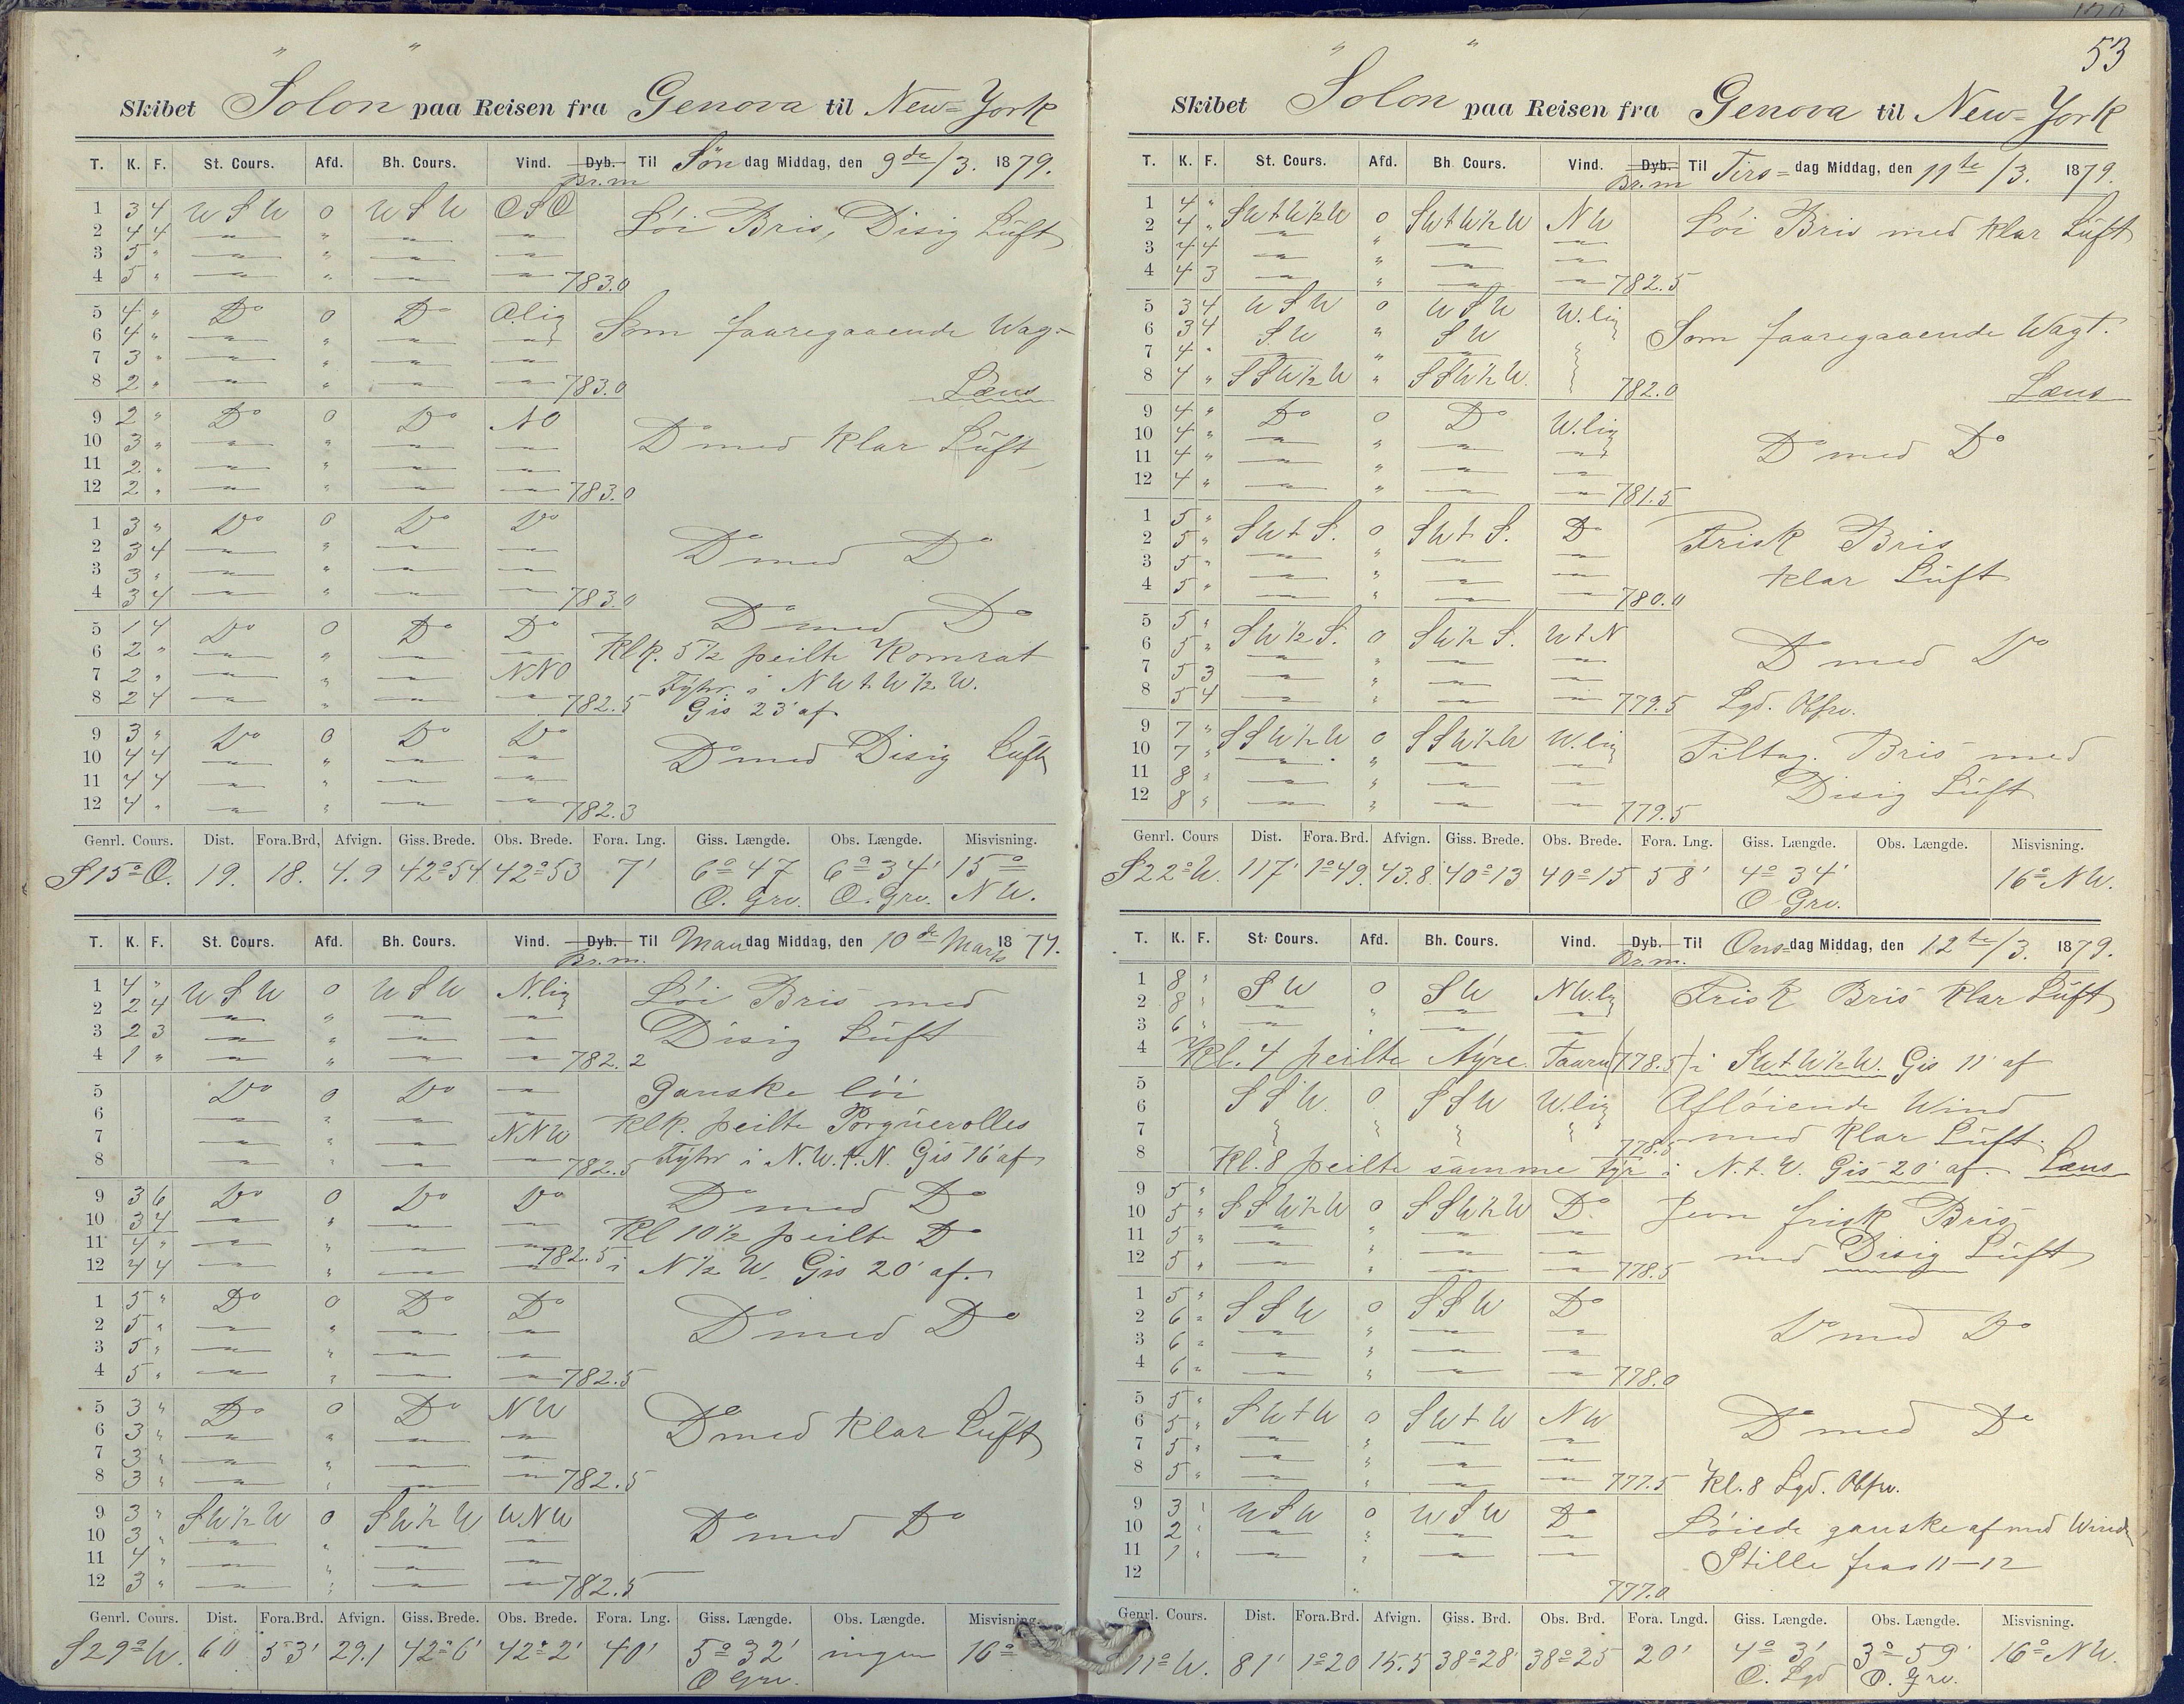 53
Skibet Solon paa Reisen fra Genova til New=York
T. K. F. St. Cours. Afd. Bh. Cours. Vind. Dyb. Br.m Til Søndag Middag, den 9de/3. 1879.
1 3 4 W S W 0 W S W O S O Løi Bris, Disig Luft
2 4 4 — " — —
3 5 " — " — —
4 5 " — " — — 783.0
5 4 " Do 0 Do O.lig Som faaregaaende Wag-
6 4 " — " — —
7 3 " — " — —
8 2 " — " — — 783.0 Læns
9 2 " Do 0 Do N O Do med klar Luft
10 3 " — " — —
11 2 " — " — —
12 2 " — " — — 783.0
1 3 " Do 0 Do Do
2 3 4 — " — — Do med Do
3 3 " — " — —
4 3 4 — " — — 783.0
5 1 4 Do 0 Do Do Do med Do
6 2 " — " — — Klk. 5 1/2 peilte Komrat
7 2 " — " — NNO Fyhr. i N W t. W 1/2 W.
8 2 4 — " — — 782.5 Gis 23' af
9 3 " Do 0 Do Do Do med Disig Luft
10 4 4 — " — —
11 4 4 — " — —
12 4 " — " — — 782.3
Genrl. Cours. Dist. Fora.Brd, Afvign. Giss. Brede. Obs. Brede. Fora. Lng. Giss. Længde. Obs. Længde. Misvisning.
S 15° O. 19. 18. 4.9 42°54 42°53 7' 6°47 O. Grv. 6°34' O. Grv. 15° N W.
T. K. F. St. Cours. Afd. Bh. Cours. Vind. Dyb. Br.m. Til Mandag Middag, den 10de Marts 1879.
1 4 " W S W 0 W S W N.lig Løi Bris med
2 2 4 — " — — Disig Luft
3 2 3 — " — —
4 1 " — " — — 782.2
5 Do 0 Do — Ganske løi
6 — " — — Klk. peilte Porguerolles
7 — " — NNW Fyhr i N.W.t.N. Gis 16' af
8 — " — — 782.5
9 3 6 Do 0 Do Do Do med Do
10 3 4 — " — — Kl 10 1/2 peilte Do
11 4 " — " — — 782.5 i N 1/2 W. Gis 20' af.
12 4 4 — " — —
1 5 " Do 0 Do Do Do med Do
2 5 " — " — —
3 5 " — " — —
4 5 " — " — — 782.5
5 3 " Do 0 Do N W Do med klar Luft
6 3 " — " — —
7 3 " — " — —
8 3 " — " — — 782.5
9 3 " S W 1/2 W 0 S W 1/2 W W N W Do med Do
10 3 " — " — —
11 4 " — " — —
12 3 " — " — — 782.5
Genrl. Cours. Dist. Fora.Brd. Afvign. Giss. Brede. Obs. Brede. Fora. Lng. Giss. Længde. Obs. Længde. Misvisning.
S 29° W. 60 53' 29.1 42°6' 42°2' 40' 5°32' O Grv. ingen 16°
Skibet Solon paa Reisen fra Genova til New=York
T. K. F. St. Cours. Afd. Bh. Cours. Vind. Dyb. Br.m Til Tirs=dag Middag, den 11te/3. 1879.
1 4 " S W t W 1/2 W 0 S W t W 1/2 W N W Løi Bris med klar Luft
2 4 " — " — —
3 4 4 — " — —
4 4 3 — " — — 782.5
5 3 4 W S W 0 W S W W.lig Som faaregaaende Wagt.
6 3 4 S W " S W
7 4 " — " —
8 4 " S S W 1/2 W " S S W 1/2 W. 782.0 Læns
9 4 " Do 0 Do W.lig Do med Do
10 4 " — " — —
11 4 " — " — —
12 4 " — " — — 781.5
1 5 " S W t S. 0 S W t S. Do Frisk Bris
2 5 " — " — — klar Luft
3 5 " — " — —
4 5 " — " — — 780.0
5 5 " S W 1/2 S. 0 S W 1/2 S. W t N Do med Do
6 5 " — " — —
7 5 3 — " — —
8 5 4 — " — — 779.5 Lgd. Obsv.
9 7 " S S W 1/2 W 0 S S W 1/2 W W.lig Tiltag. Bris med
10 7 " — " — — Disig Luft
11 8 " — " — —
12 8 " — " — — 779.5
Genrl. Cours Dist. Fora.Brd. Afvign. Giss. Brede. Obs. Brede. Fora. Lng. Giss. Længde. Obs. Længde. Misvisning.
S 22° W. 117' 1°49. 43.8. 40°13 40°15 58' 4°34' O Grv. 16° N W.
T. K. F. St. Cours. Afd. Bh. Cours. Vind. Dyb. Br.m. Til Ons=dag Middag, den 12te/3. 1879.
1 8 " S W 0 S W N W.lig Frisk Bris klar Luft
2 8 " — " — —
3 6 " — " — —
4 Kl. 4 peilte Ayre Taarn (778.5) i S W t W 1/2 W. Gis 11' af
5 S S W. 0 S S W W.lig Afløiende Wind
6 med klar Luft.
7 778.5
8 Kl. 8 peilte samme Fyr i N. t. W. Gis 20' af. Læns
9 5 " S S W 1/2 W 0 S S W 1/2 W Do Jevn frisk Bris
10 5 " — " — — med Disig Luft
11 5 " — " — —
12 5 " — " — — 778.5
1 5 " S S W 0 S S W Do Do med Do
2 6 " — " — —
3 6 " — " — —
4 6 " — " — — 778.0
5 5 " S W t W 0 S W t W N W Do med Do
6 5 " — " — —
7 5 " — " — —
8 5 " — " — — 777.5 Kl. 8 Lgd. Obsv.
9 3 " W S W 0 W S W Do Løiede ganske af med Wind
10 2 " — " — — Stille fra 11–12
11 1 " — " — —
12 777.0
Genrl. Cours. Dist. Fora.Brd. Afvign. Giss. Brd. Obs. Brd. Fora. Lngd. Giss. Længde. Obs. Længde. Misvisning.
11° W. 81' 1°20 15.5 38°28' 38°25 20' 4°3' O. Lgd 3°59' O. Grv. 16° N W.